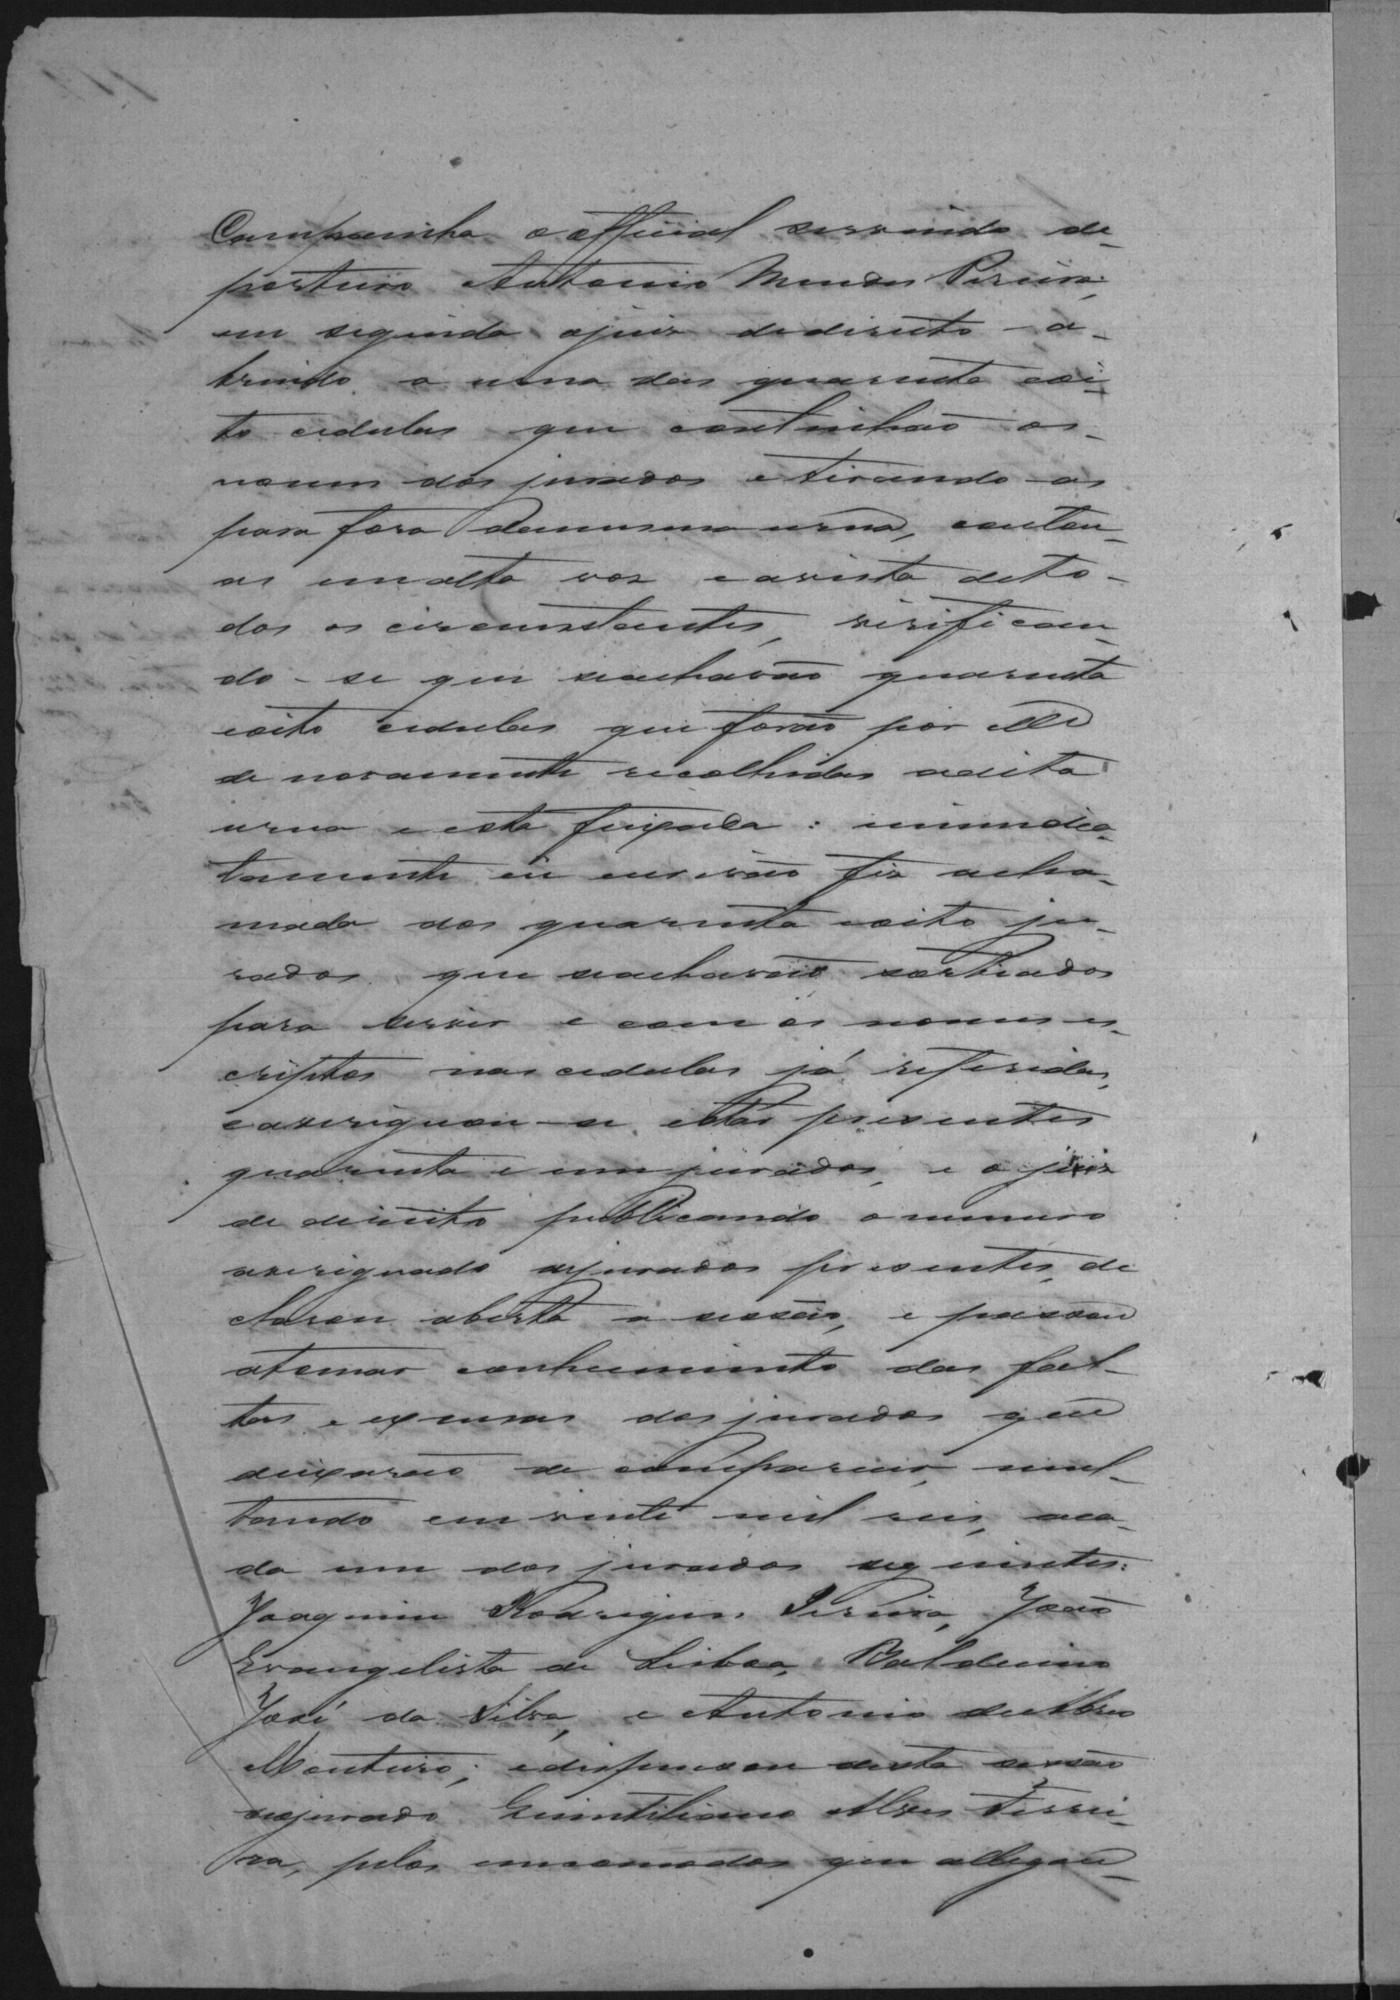 Campainha o official servindo de
porteiro Antonio Mendes Pereira;
em seguida o juiz de direito a-
brindo a urna das quarenta e oi-
to cedulas que continhão os
nomes dos jurados e tirando-as
para fora da mesma urna, contou-
as em alta voz e a vista de to-
dos os circunstantes, verifican-
do-se que se achavão quarenta
e oito cedulas que forão por elle
de novamente recolhidas a dita
urna e esta feixada: immedia-
tamente eu escrivão fiz a cha-
mada dos quarenta e oito ju-
rados que se achavão sorteados
para servir e com os nomes es-
criptos nas cedulas já referidas,
e averiguou-se estar presentes
quarenta e um jurados, e o juiz
de direito publicando o numero
averiguado de jurados presentes, de
clarou aberta a sessão, e passou
a tomar conhecimento das fal-
tas e excusas dos jurados que
deixarão de comparecer, mul-
tando em vinte mil reis, a ca-
da um dos jurados seguintes:
Joaquim Rodrigues Pereira, João
Evangelista de Lisboa, Balduino
José da Silva, e Antonio de Abreu
Monteiro; e dispensou desta sessão
o jurado Quintiliano Alves Ferrei-
ra, pelos incomodos que allegou